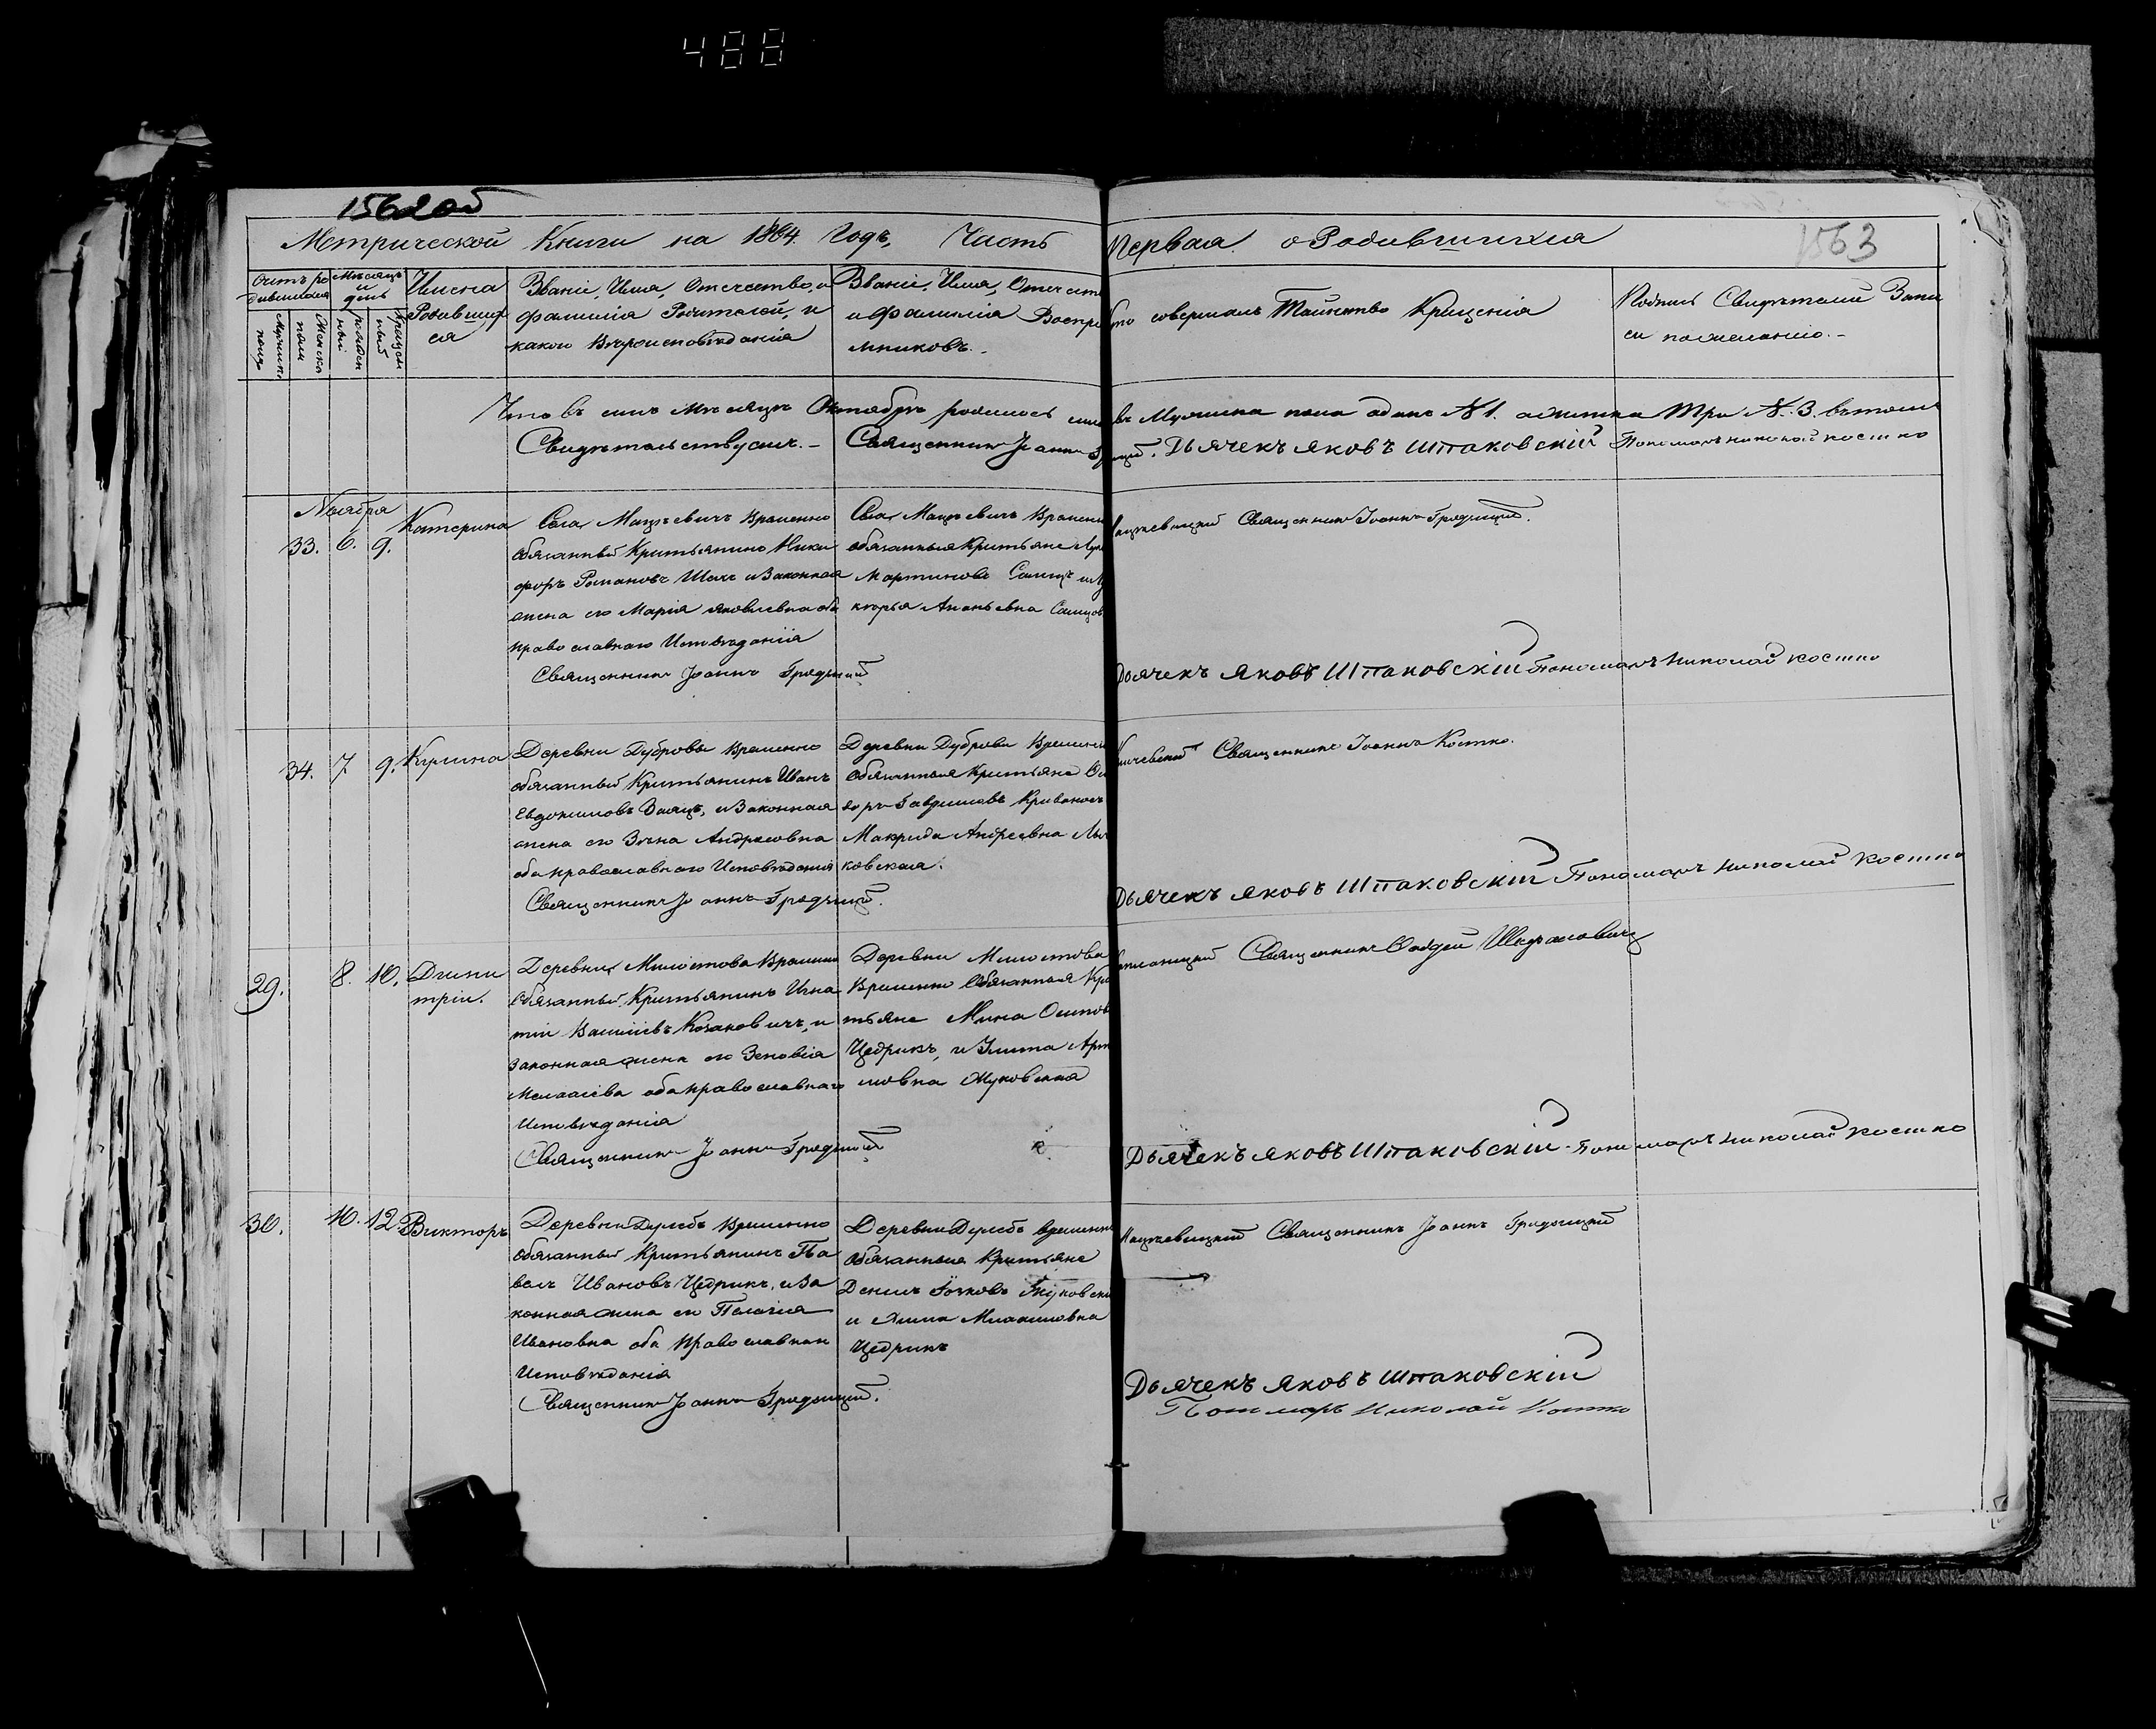 488
1562об
Метрической Книги на 1864 Годъ, Часть Первая о Родившихся
1563
Счетъ родившихся
Мужеска пола
Женска пола
Мѣсяцъ и день
рожденія
крещенія
Имена Родившихся
Званіе, Имя, Отчество, и
фамилія Родителей, и
какого Вѣроисповѣданія
Званіе, Имя, Отчеств
и фамилія Воспри
мниковъ.
Кто совершалъ Таинство Крещенія
Подпись Свидѣтелей Запи
си по желанію.
Что въ семъ Мѣсяцѣ Октябрѣ родилось Мужеска пола одинъ №1. а женска три №.3. въ томъ
Свидѣтельствуемъ. Священникъ Іоаннъ Дьячекъ Яковъ Шпаковскій Пономарь Николай Костко
Ноября
33. 6. 9. Катерина
Села Мацѣевичъ Временно
обязанный Крестьянинъ Ники
форъ Романовъ Шахъ и Законная
жена его Марія Яковлевна оба
православнаго Исповѣданія
Священникъ Іоаннъ Градицкій
Села Мацѣевичъ Временно
обязанныя Крестьяне
Мартиновъ
Ананьевна
Священникъ Іоаннъ Градицкій.
Дьячекъ Яковъ Шпаковскій Пономарь Николай Костко
34. 7 9.
Деревни Дубровы Временно
обязанный Крестьянинъ Иванъ
Евдокимовъ Заяцъ, и Законная
жена его Андреовна
оба православнаго Исповѣданія
Священникъ Іоаннъ Градицкій.
Деревни Дубровы Временно
обязанныя Крестьяне
Макрида Андреевна
ковская.
Священникъ Іоаннъ Костко.
Дьячекъ Яковъ Шпаковскій Пономарь Николай Костко
29. 8. 10. Дими
трій.
Деревни Милостова Временно
обязанный Крестьянинъ Игна
тій Козаковичъ, и
Законная жена его Зеновія
оба православнаго
Исповѣданія
Священникъ Іоаннъ Градицкій
Деревни Милостова
Временно Обязанныя Кре
тьяне Мина Осипов
Цедрикъ, и Улита Арт
мовна Жуковская
Священникъ
Дьячекъ Яковъ Шпаковскій Пономарь Николай Костко
30. 10. 12. Викторъ
Деревни Временно
обязанный Крестьянинъ Па
велъ Ивановъ Цедрикъ, и За
конная жена его Пелагія
Ивановна оба Православнаго
Исповѣданія
Священникъ Іоаннъ Градицкій.
Деревни временно
обязанныя Крестьяне
Денисъ Жуковски
и
Цедрикъ
Священникъ Іоаннъ Градицкій
Дьячекъ Яковъ Шпаковскій
Пономарь Николай Костко